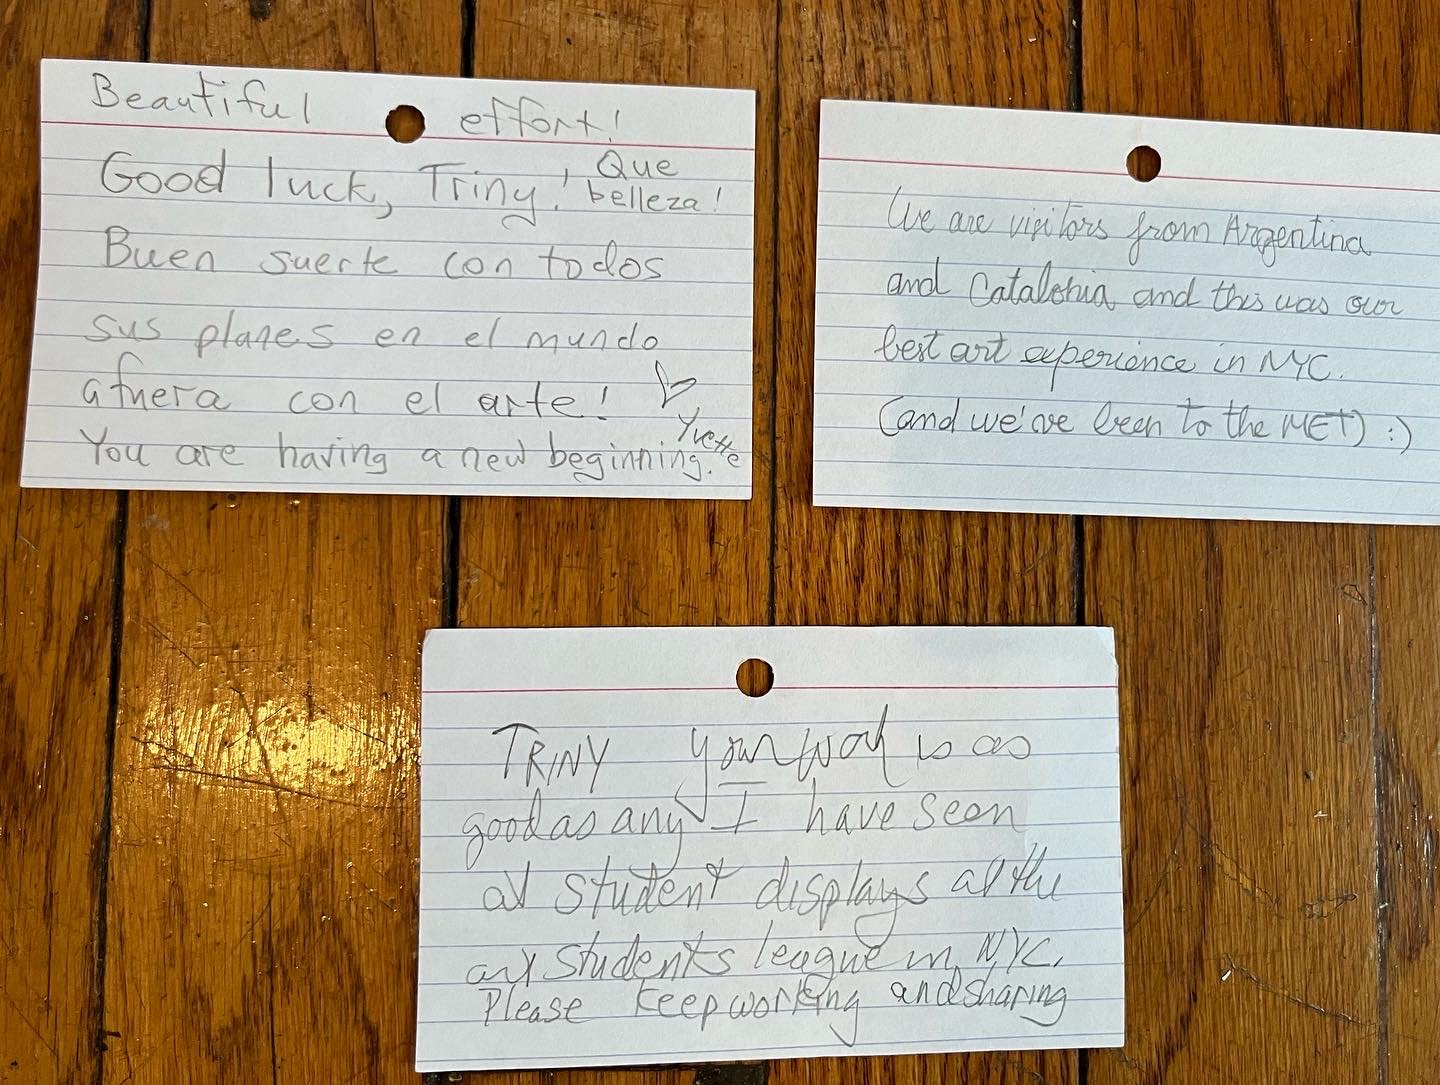 Beautiful effort!
Good luck, Triny! Que
belleza!
Buen suerte con todos
sus planes en el mundo
afuera con el arte!
Yvette
You are having a new beginning.
We are visitors from Argentina
and Catalonia and this was our
best art experience in NYC.
(and we've been to the MET) :)
TRINY your work is as
good as any I have seen
at student displays at the
art students league in NYC.
Please keep working and sharing